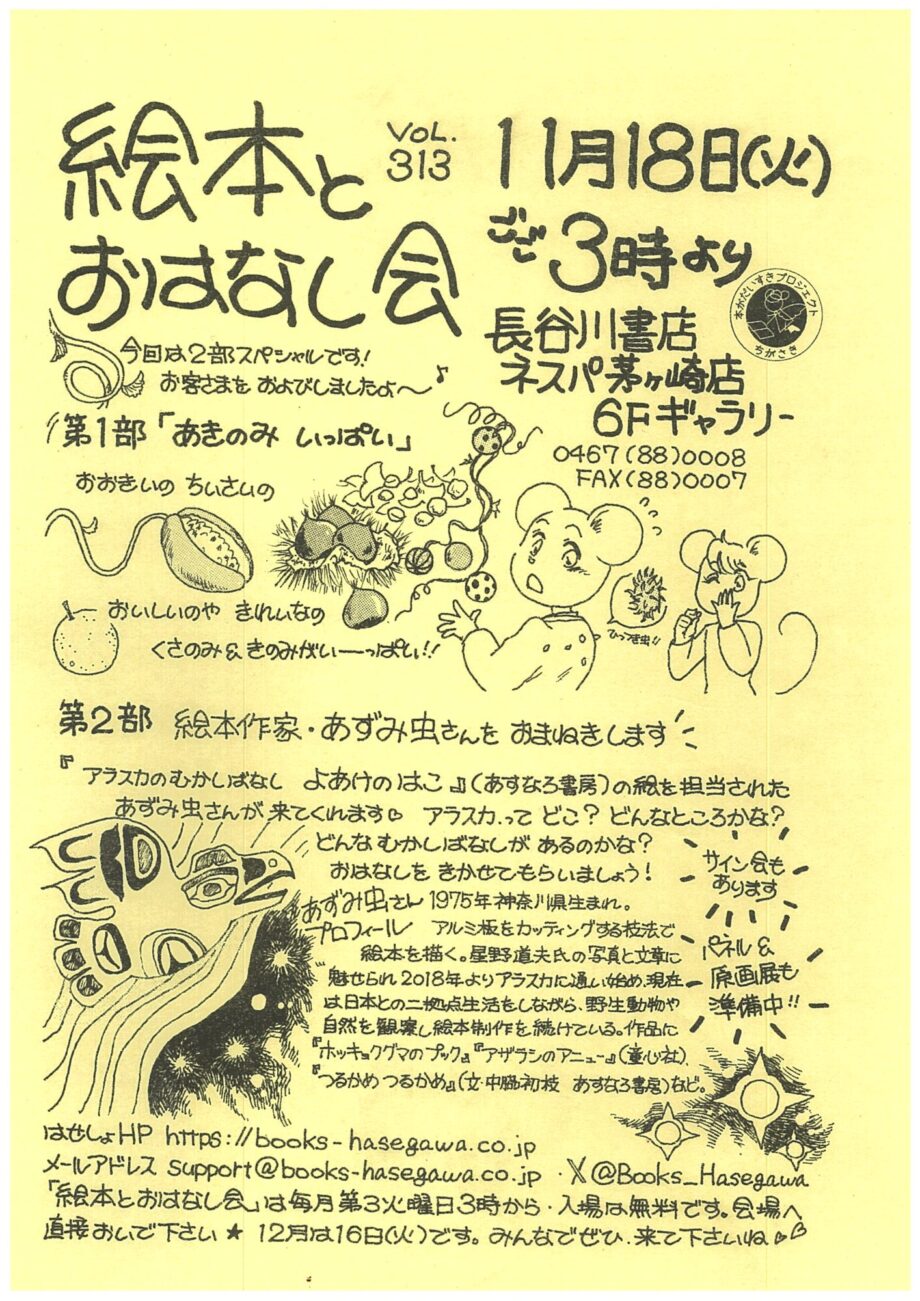 絵本と
おはなし会
VOL.
313
11月18日(火)
ごご3時より
長谷川書店
ネスパ茅ヶ崎店
6Fギャラリー
0467(88)0008
FAX(88)0007
本がだいすきプロジェクト
ちがさき
今回は2部スペシャルです!
お客さまを およびしましたよ〜♪
第1部「あきのみ いっぱい」
おおきいの ちいさいの
おいしいのや きれいなの
くさのみ&きのみがいーーっぱい!!
ひっつき虫!!
第2部 絵本作家・あずみ虫さんを おまねきします
『アラスカのむかしばなし よあけのはこ』(あすなろ書房)の絵を担当された
あずみ虫さんが来てくれます♡ アラスカって どこ? どんなところかな?
どんな むかしばなしが あるのかな?
おはなしを きかせてもらいましょう!
サイン会も
あります
パネル&
原画展も
準備中!!
あずみ虫さん 1975年神奈川県生まれ。
プロフィール アルミ板をカッティングする技法で
絵本を描く。星野道夫氏の写真と文章に
魅せられ2018年よりアラスカに通い始め、現在
は日本との二拠点生活をしながら、野生動物や
自然を観察し絵本制作を続けている。作品に
『ホッキョクグマのプック』『アザラシのアニュー』(童心社)、
『つるかめ つるかめ』(文・中脇初枝 あすなろ書房)など。
はせしょHP https://books-hasegawa.co.jp
メールアドレス support@books-hasegawa.co.jp ・X@Books_Hasegawa
「絵本とおはなし会」は毎月第3火曜日3時から・入場は無料です。会場へ
直接おいで下さい★ 12月は16日(火)です。みんなでぜひ、来て下さいね♡♡